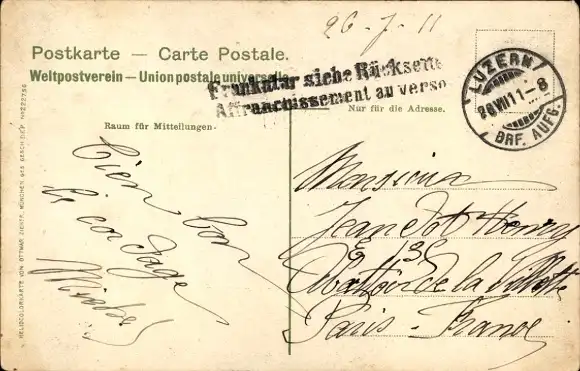 26-7-11
Postkarte — Carte Postale.
Weltpostverein — Union postale universelle
Frankatur siehe Rückseite
Affranchissement au verso
LUZERN
26 VII 11-8
BRF. AUFG.
Raum für Mitteilungen.
Nur für die Adresse.
Bien bon
Monsieur
Jean
de la Villette
Paris - France
HELIOCOLORKARTE VON OTTMAR ZIEHER, MÜNCHEN GES. GESCH. D.R.P. Nr 222736